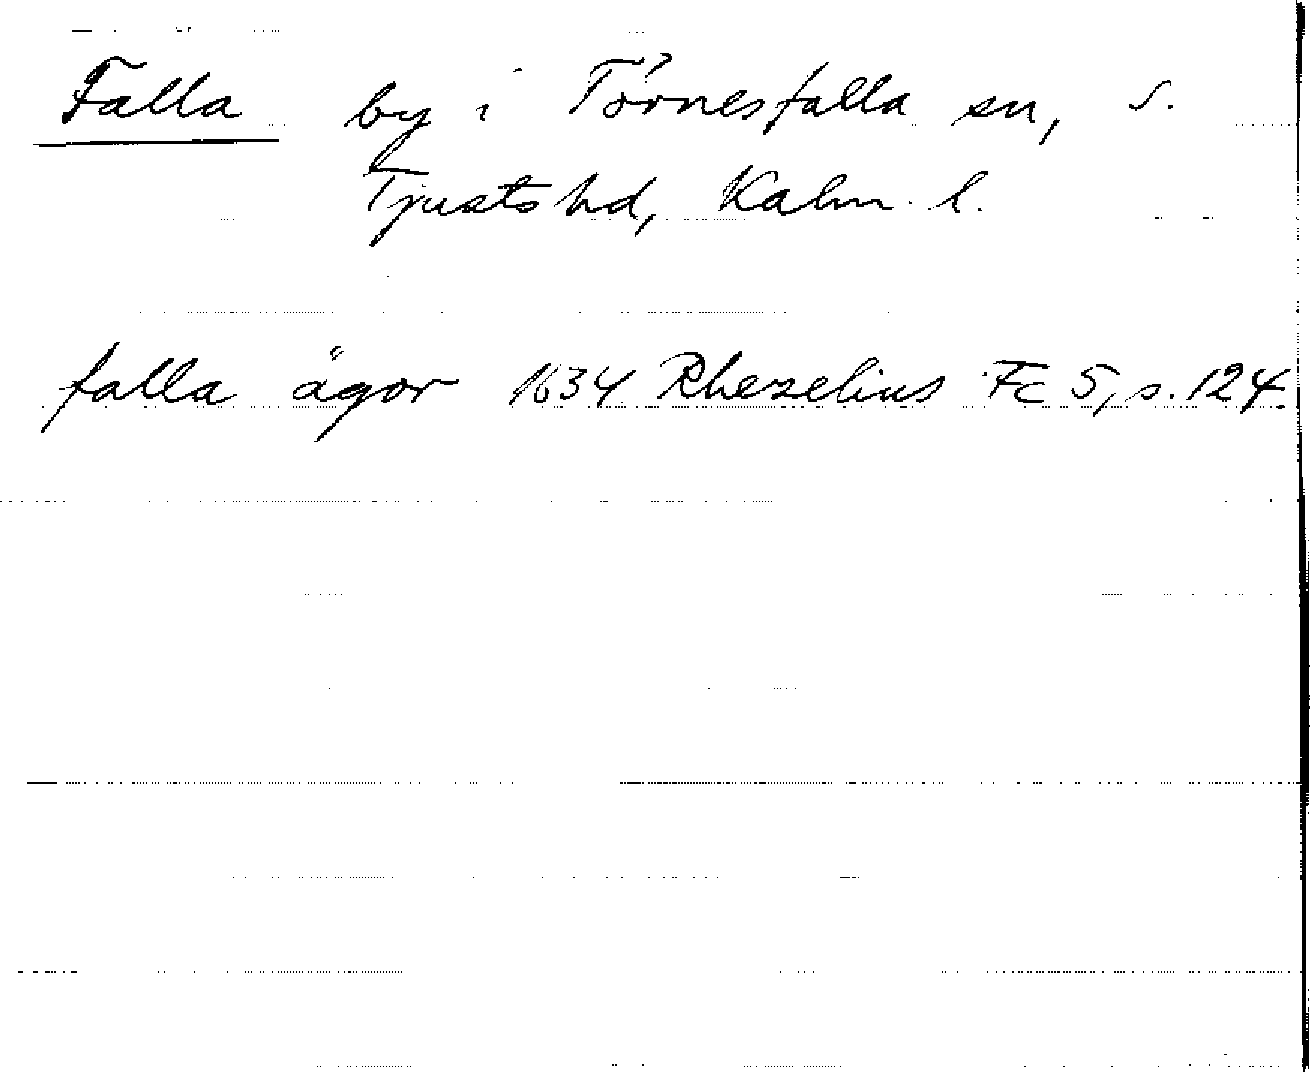 Falla by i Törnesfalla sn, S.
Tjusts hd, Kalm. l.
falla ägor 1634 Rhezelius Fc 5, s. 124.